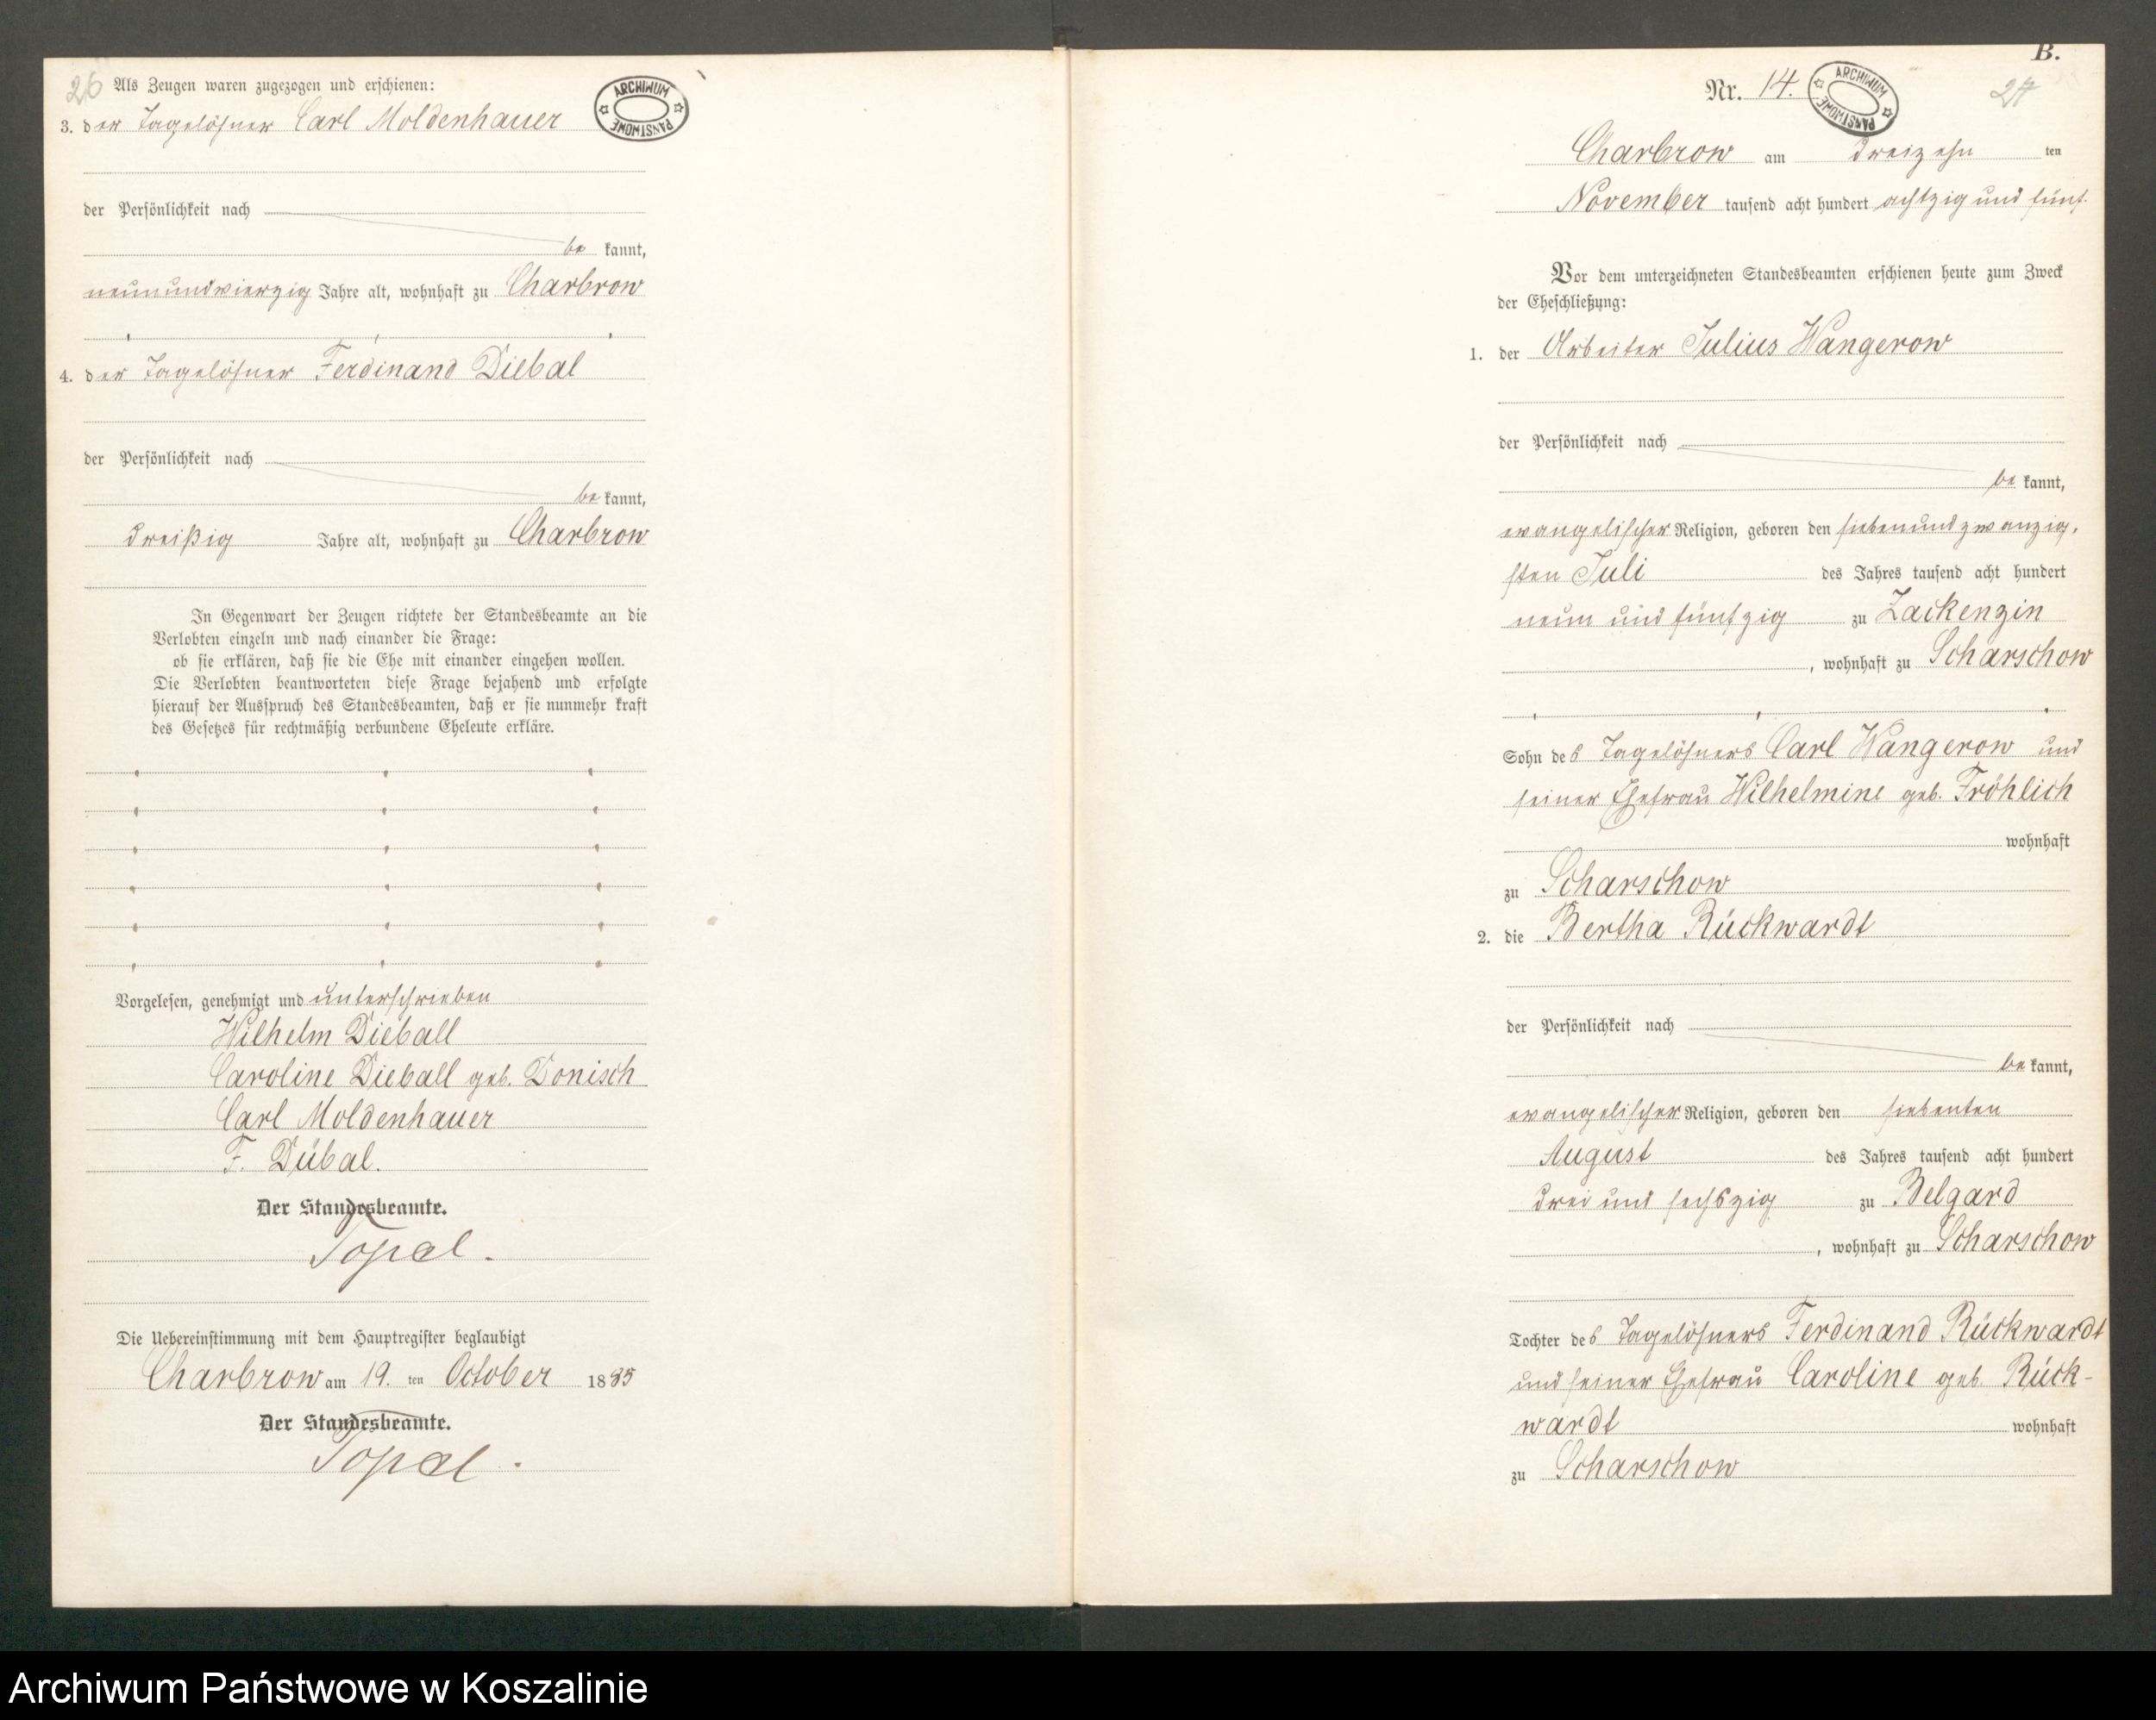 26 Als Zeugen waren zugezogen und erschienen:
ARCHIWUM PAŃSTWOWE
3. der Tagelöhner Carl Moldenhauer
der Persönlichkeit nach
be kannt,
neunundvierzig Jahre alt, wohnhaft zu Charbrow
4. der Tagelöhner Ferdinand Diebal
der Persönlichkeit nach
be kannt,
dreißig Jahre alt, wohnhaft zu Charbrow
In Gegenwart der Zeugen richtete der Standesbeamte an die
Verlobten einzeln und nach einander die Frage:
ob sie erklären, daß sie die Ehe mit einander eingehen wollen.
Die Verlobten beantworteten diese Frage bejahend und erfolgte
hierauf der Ausspruch des Standesbeamten, daß er sie nunmehr kraft
des Gesetzes für rechtmäßig verbundene Eheleute erkläre.
Vorgelesen, genehmigt und unterschrieben
Wilhelm Dieball
Caroline Dieball geb. Donisch
Carl Moldenhauer
F. Dübal.
Der Standesbeamte.
Topel.
Die Uebereinstimmung mit dem Hauptregister beglaubigt
Charbrow am 19. ten October 1885
Der Standesbeamte.
Topel.
B.
Nr. 14.
ARCHIWUM PAŃSTWOWE
27
Charbrow am dreizehn ten
November tausend acht hundert achtzig und fünf.
Vor dem unterzeichneten Standesbeamten erschienen heute zum Zweck
der Eheschließung:
1. der Arbeiter Julius Wangerow
der Persönlichkeit nach
be kannt,
evangelischer Religion, geboren den siebenundzwanzig-
sten Juli des Jahres tausend acht hundert
neun und fünfzig zu Zackenzin
, wohnhaft zu Scharschow
Sohn des Tagelöhners Carl Wangerow und
seiner Ehefrau Wilhelmine geb. Fröhlich
wohnhaft
zu Scharschow
2. die Bertha Rückwardt
der Persönlichkeit nach
be kannt,
evangelischer Religion, geboren den siebenten
August des Jahres tausend acht hundert
drei und sechszig zu Belgard
, wohnhaft zu Scharschow
Tochter des Tagelöhners Ferdinand Rückwardt
und seiner Ehefrau Caroline geb. Rück-
wardt wohnhaft
zu Scharschow
Archiwum Państwowe w Koszalinie